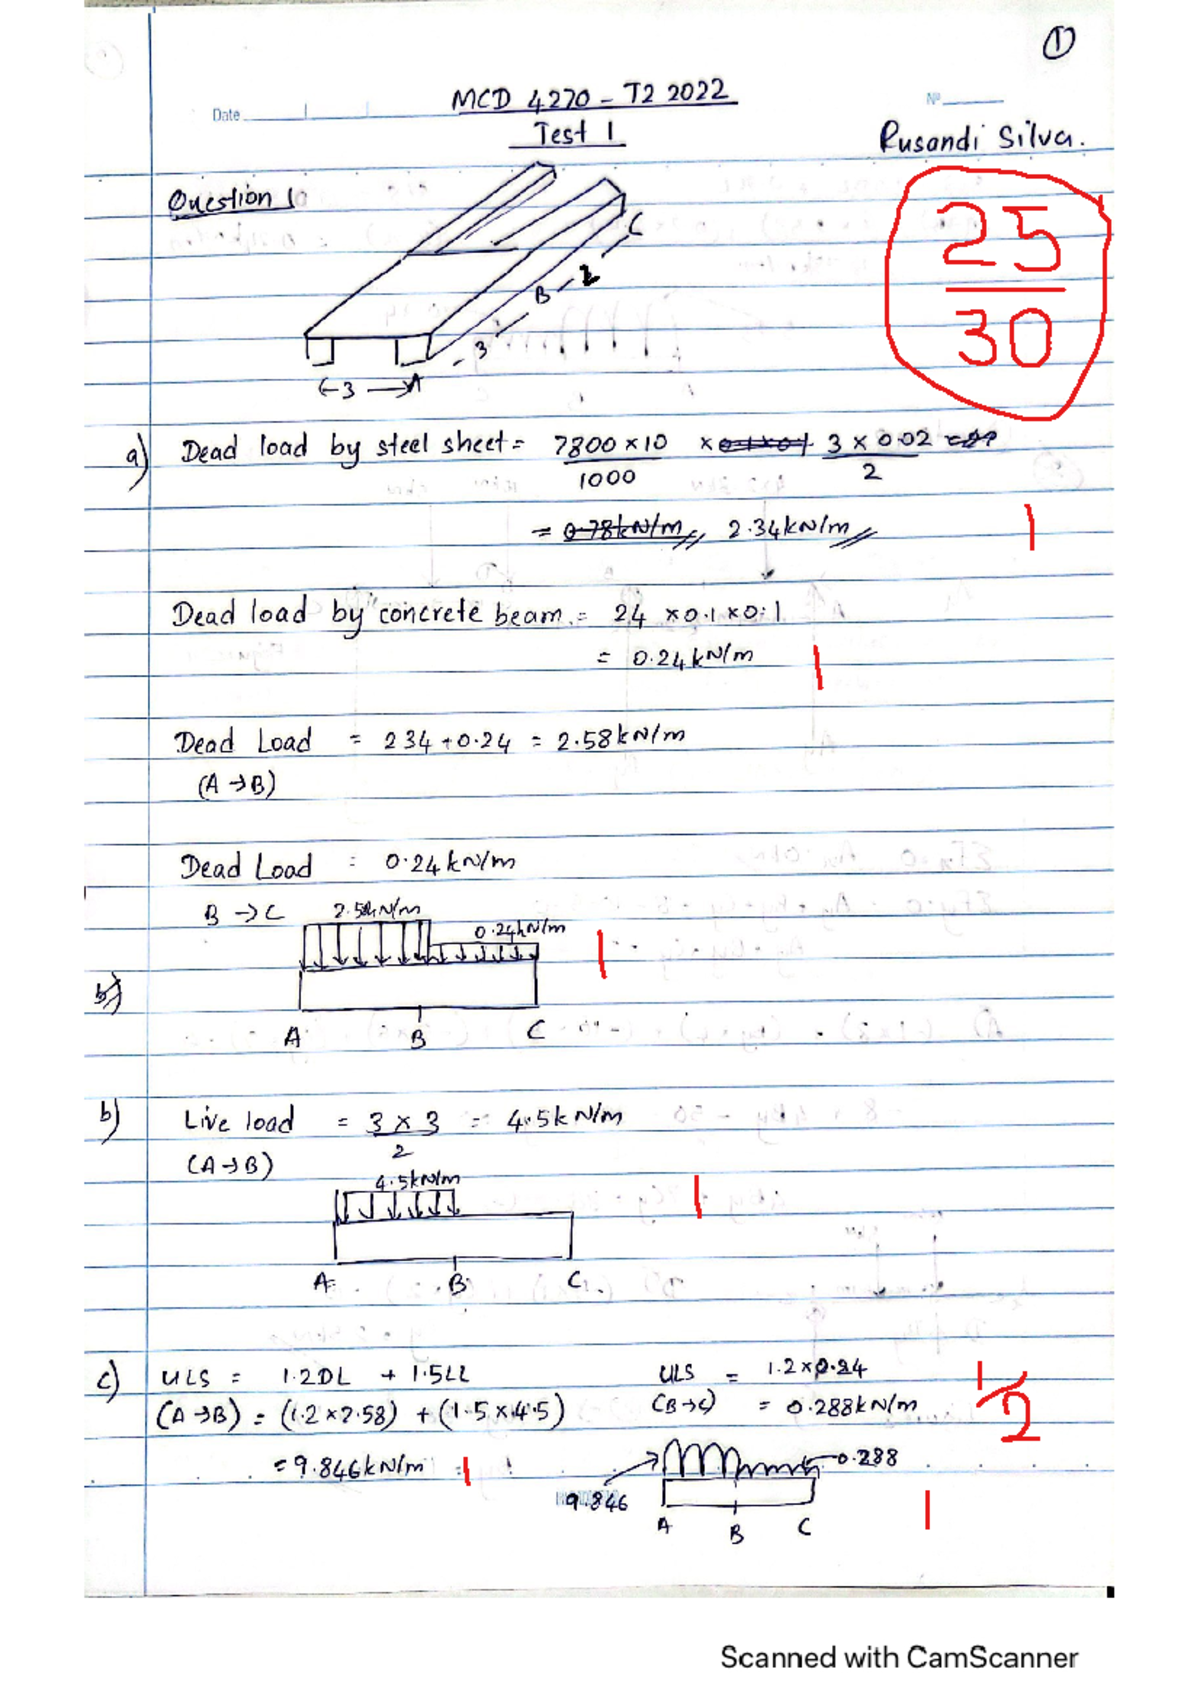 ①
MCD 4270 - T2 2022
Date
Nº
Test 1
Rusandi Silva.
Question 1
25
30
C
2
B
3
← 3 → A
a) Dead load by steel sheet = 7800 × 10 / 1000 × 3 × 0.02 / 2
= 0.78kN/m, 2.34kN/m
1
Dead load by concrete beam = 24 × 0.1 × 0.1
= 0.24kN/m
1
Dead Load = 234 + 0.24 = 2.58kN/m
(A → B)
Dead Load = 0.24kN/m
B → C
2.58kN/m
0.24kN/m
1
b)
A B C
b) Live load = 3 × 3 / 2 = 4.5kN/m
(A → B)
4.5kN/m
1
A B C
c) ULS = 1.2DL + 1.5LL
(A → B) = (1.2 × 2.58) + (1.5 × 4.5)
= 9.846kN/m
1
ULS = 1.2 × 0.24
(B → C) = 0.288kN/m
1/2
0.288
9.846
A B C
1
Scanned with CamScanner